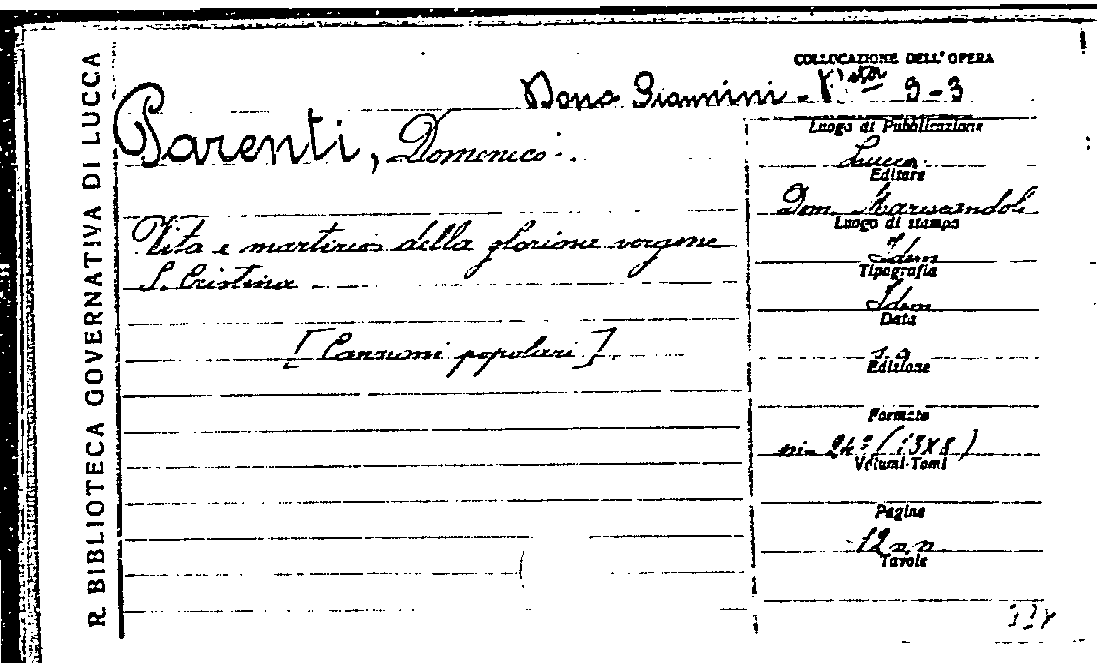 R. BIBLIOTECA GOVERNATIVA DI LUCCA
COLLOCAZIONE DELL'OPERA
Dono Giannini - 9-3
Parenti, Domenico.
Vita e martirio della gloriosa vergine
S. Cristina
[Canzoni popolari].
Luogo di Pubblicazione
Lucca.
Editore
Dom. Marescandoli
Luogo di stampa
Idem
Tipografia
Idem
Data
s. a.
Edizione
Formato
in-24º (13X8)
Volumi-Tomi
Pagine
12 n n.
Tavole